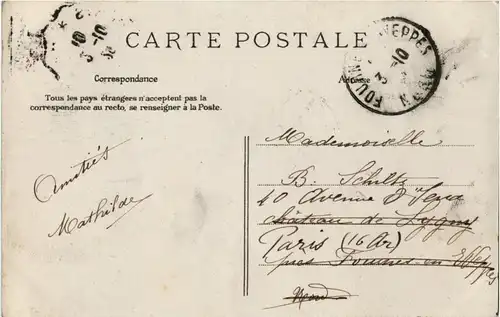 CARTE POSTALE
Correspondance
Adresse
Tous les pays étrangers n'acceptent pas la
correspondance au recto, se renseigner à la Poste.
Amitiés
Mathilde
Mademoiselle
B. Schiltz
10 Avenue d'Iena
château de Lygny
Paris (16 Ar)
près Fournes-en-Weppes
Nord